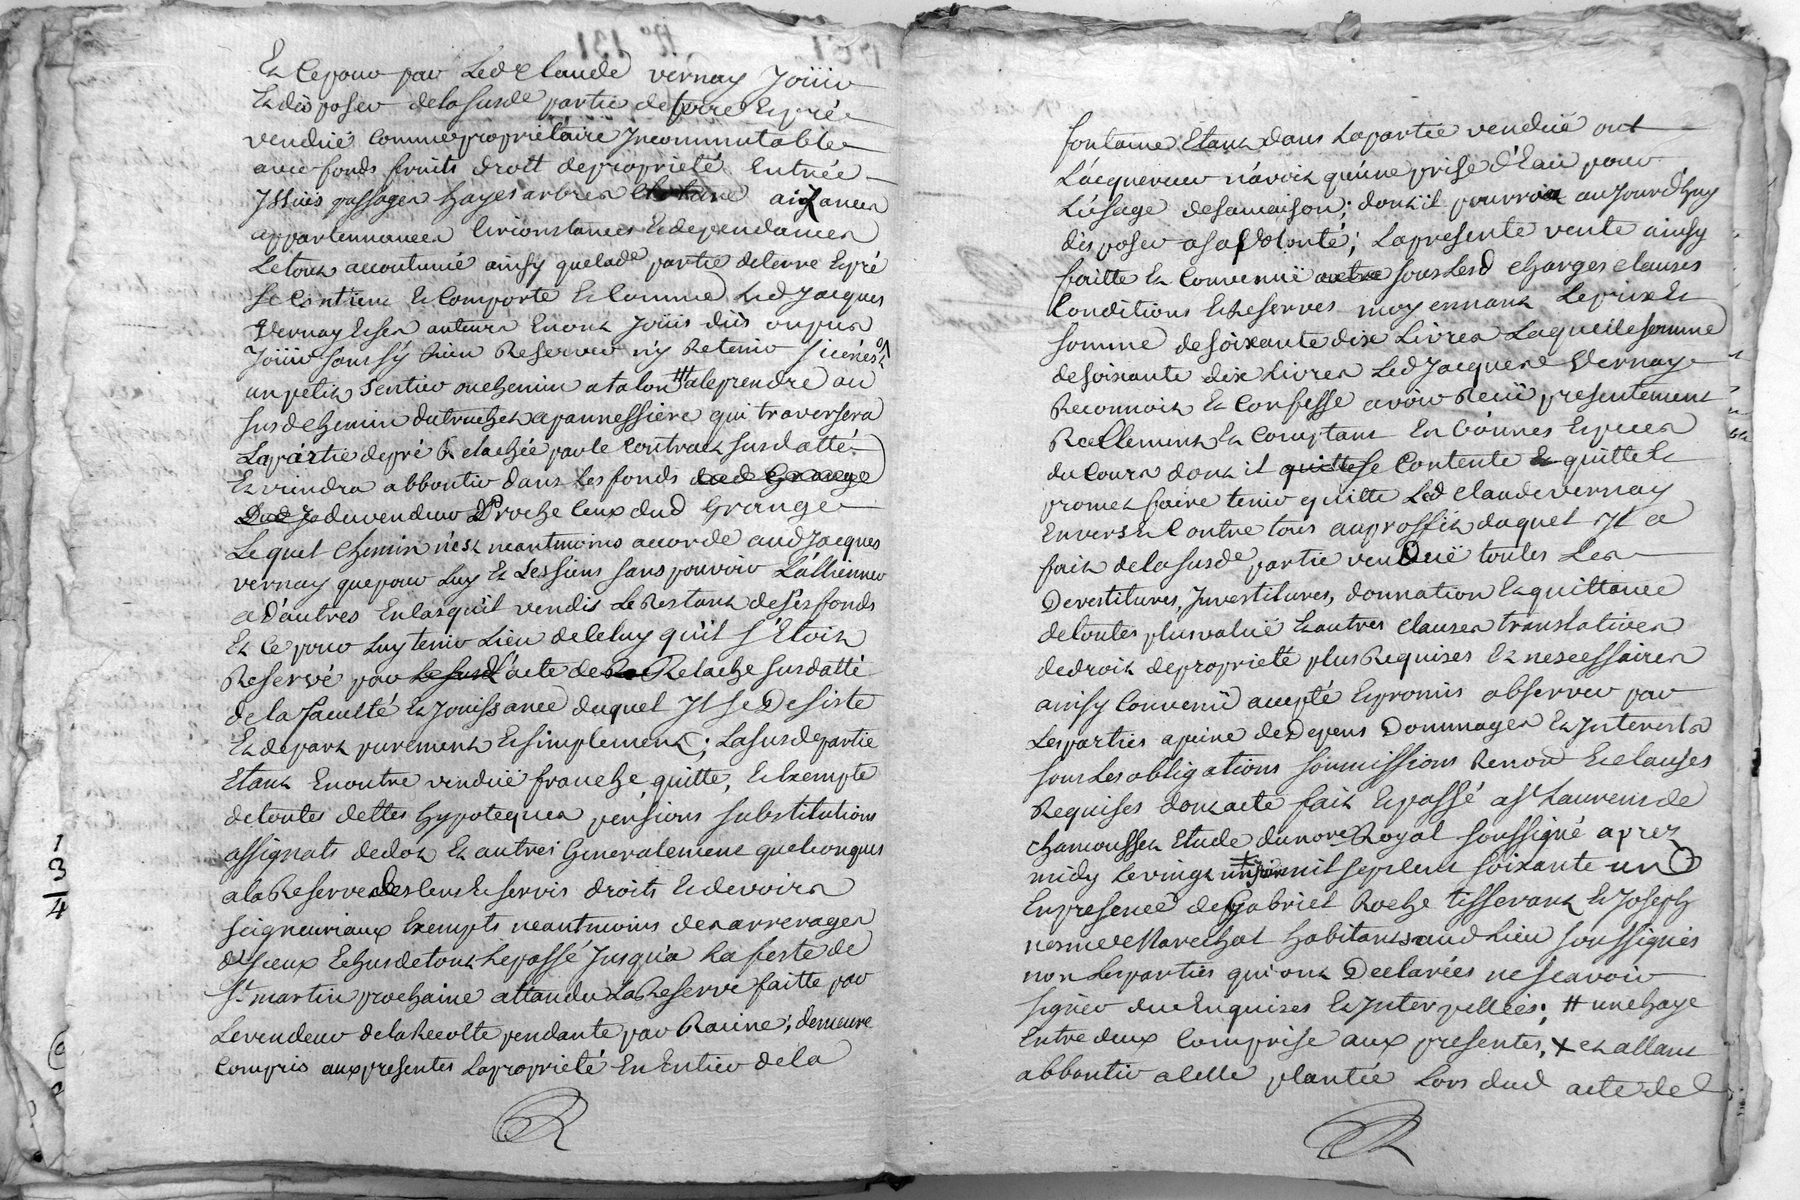 Et ce pour par led Claude vernay Joüir
Et disposer delasusde partie deterre Et pré
vendüe comme propriétaire Incommutable
avec fonds fruits droit depropriété Entrée
Issües passages hayes arbres aizances
appartennances Circonstances Et dependances
Letout accoutumé ainsy quelade partie deterre Et pré
Se Contient Et Comporte Et Comme Led Jacques
Vernay Et ses auteurs En ont Joüis dûs ou pu
Joüir sans sy Rien Reserver n'y Retenir si ce n'est
un petit Sentier ou chemin a talon # aleprendre au
susd chemin dutruchet apannessiere qui traversera
Lapartie depré Relachée par le Contract susdatté
Et viendra abboutir dans Les fonds dud Grange
Dud Ja duvendeur Proche Ceux dud Grange
Lequel Chemin n'est neantmoins accordé aud Jacques
vernay que pour Luy Et Les siens sans pouvoir L'alliener
a D'autres En Cas qu'il vendit Le Restant desesfonds
Et Ce pour Luy tenir Lieu deCeluy qu'il S'Etoit
Reservé par Le susd L'acte de Relache susdatté
de la faculté Et Jouissance duquel Il se Desiste
Et depart purement Et simplement; La susde partie
Etant En outre vendüe franche, quitte, Et Exempte
detoutes dettes hypoteques pensions substitutions
assignats dedot Et autres Generalement quelconques
ala Reserve des Cens Et servis droits Et devoirs
Seigneuriaux Exempts neantmoins des arrerages
d'iceux Echus detout Le passé Jusqu'a La feste de
St martin prochaine attandu La Reserve faitte par
Levendeur de la Recolte pendante par Racine; demeure
Compris aux presentes La propriété En Entier de la
fontaine Etant dans Lapartie vendüe ou
L'acquereur n'avoit qu'une prise d'Eau pour
L'usage desamaison; dont il pourra aujourd'huy
disposer a sa volonté; La presente vente ainsy
faitte Et Convenüe outre sous Lesd Charges Clauses
Conditions Et Reserves moyennant Le prix Et
Somme desoixante dix Livres Laquelle somme
desoixante dix Livres Led Jacques Vernay
Reconnoit Et Confesse avoir Reçü presentement
Reellement Et Comptant En bonnes Especes
du Cours dont il quitte se Contente Et quitte Et
promet faire tenir quitte Led Claude vernay
Envers Et Contre tous auproffit duquel Il a
fait de la susde partie vendüe toutes Les
Devestitures, Investitures, donnation Et quittance
detoutes plus valüe Et autres Clauses translatives
dedroit depropriété plus Requises Et nescessaires
ainsy Convenü accepté Et promis observer par
Les parties a peine de Depens Dommages Et Interests
sous Les obligations soumissions Renon Et Clauses
Requises dont acte fait Et passé a St Laurens de
Chamousset Etude dunore Royal soussigné aprez
midy Le vingt mil sept Cent soixante un
En presence de Gabriel Roche tisserant Et Joseph
Marechal habitants aud Lieu soussignés
non Les parties qui ont Declarées ne scavoir
signer due Enquises Et Interpellées; # une haye
Entre deux Comprise aux presentes, x et allant
abboutir a Celle plantée Lors dud acte de